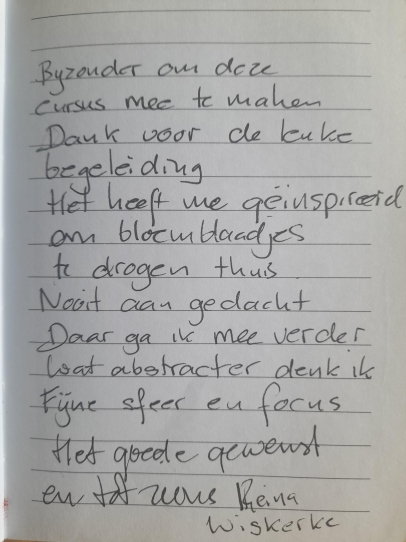 Byzonder om deze
cursus mee te maken
Dank voor de leuke
begeleiding
Het heeft me geïnspireerd
om bloemblaadjes
te drogen thuis
Nooit aan gedacht
Daar ga ik mee verder
Wat abstracter denk ik
Fijne sfeer en focus
Het goede gewenst
en tot ziens Reina
Wiskerke